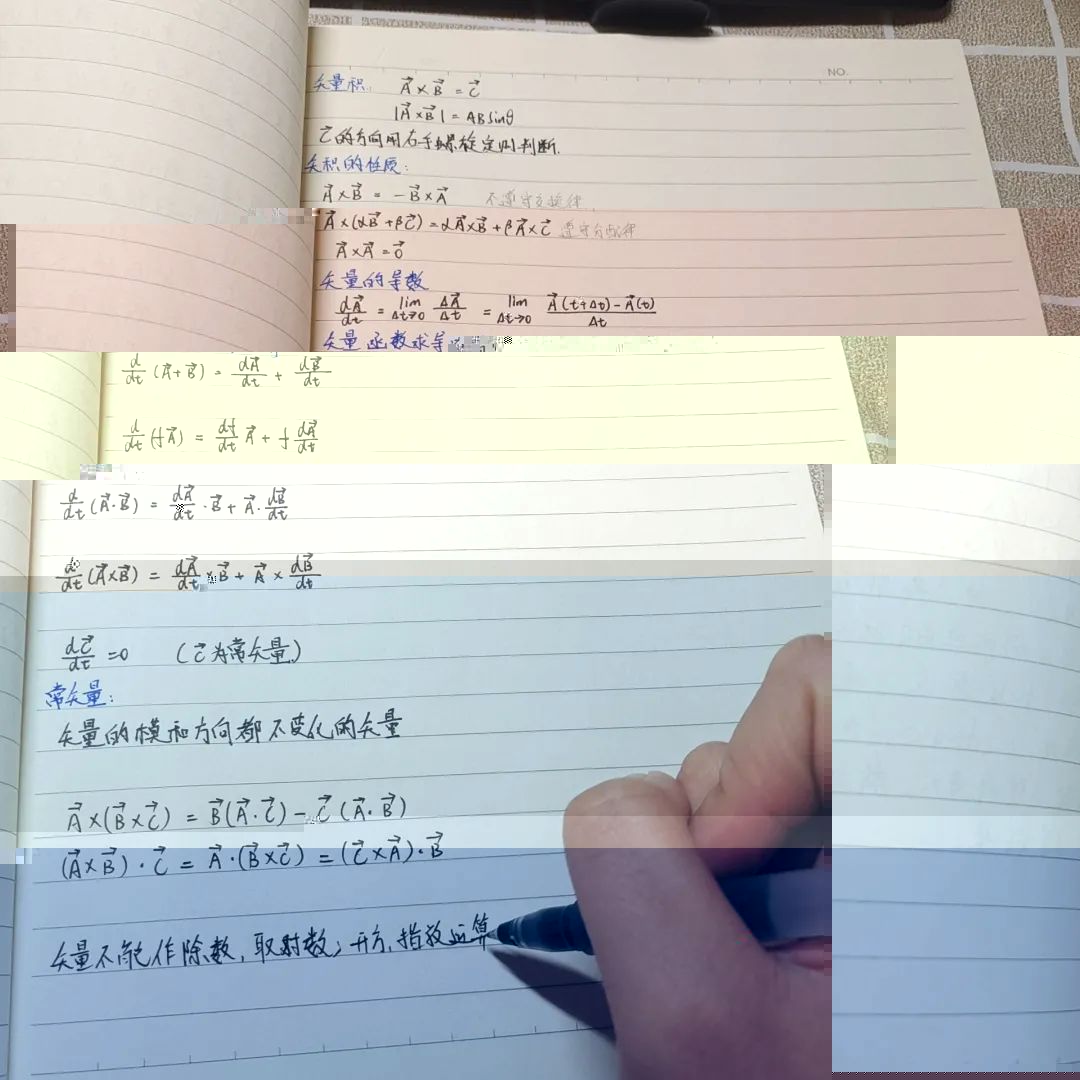 NO.
矢量积: $\vec{A}\times\vec{B}=\vec{C}$
$|\vec{A}\times\vec{B}|=AB\sin\theta$
$\vec{C}$的方向用右手螺旋定则判断.
矢积的性质:
$\vec{A}\times\vec{B}=-\vec{B}\times\vec{A}$ 不遵守交换律
$\vec{A}\times(\alpha\vec{B}+\beta\vec{C})=\alpha\vec{A}\times\vec{B}+\beta\vec{A}\times\vec{C}$ 遵守分配律
$\vec{A}\times\vec{A}=\vec{0}$
矢量的导数
$\frac{d\vec{A}}{dt}=\lim_{\Delta t\to 0}\frac{\Delta\vec{A}}{\Delta t}=\lim_{\Delta t\to 0}\frac{\vec{A}(t+\Delta t)-\vec{A}(t)}{\Delta t}$
矢量函数求导
$\frac{d}{dt}(\vec{A}+\vec{B})=\frac{d\vec{A}}{dt}+\frac{d\vec{B}}{dt}$
$\frac{d}{dt}(f\vec{A})=\frac{df}{dt}\vec{A}+f\frac{d\vec{A}}{dt}$
$\frac{d}{dt}(\vec{A}\cdot\vec{B})=\frac{d\vec{A}}{dt}\cdot\vec{B}+\vec{A}\cdot\frac{d\vec{B}}{dt}$
$\frac{d}{dt}(\vec{A}\times\vec{B})=\frac{d\vec{A}}{dt}\times\vec{B}+\vec{A}\times\frac{d\vec{B}}{dt}$
$\frac{d\vec{C}}{dt}=0$ ($\vec{C}$为常矢量)
常矢量:
矢量的模和方向都不变化的矢量
$\vec{A}\times(\vec{B}\times\vec{C})=\vec{B}(\vec{A}\cdot\vec{C})-\vec{C}(\vec{A}\cdot\vec{B})$
$(\vec{A}\times\vec{B})\cdot\vec{C}=\vec{A}\cdot(\vec{B}\times\vec{C})=(\vec{C}\times\vec{A})\cdot\vec{B}$
矢量不能作除数,取对数,开方,指数运算